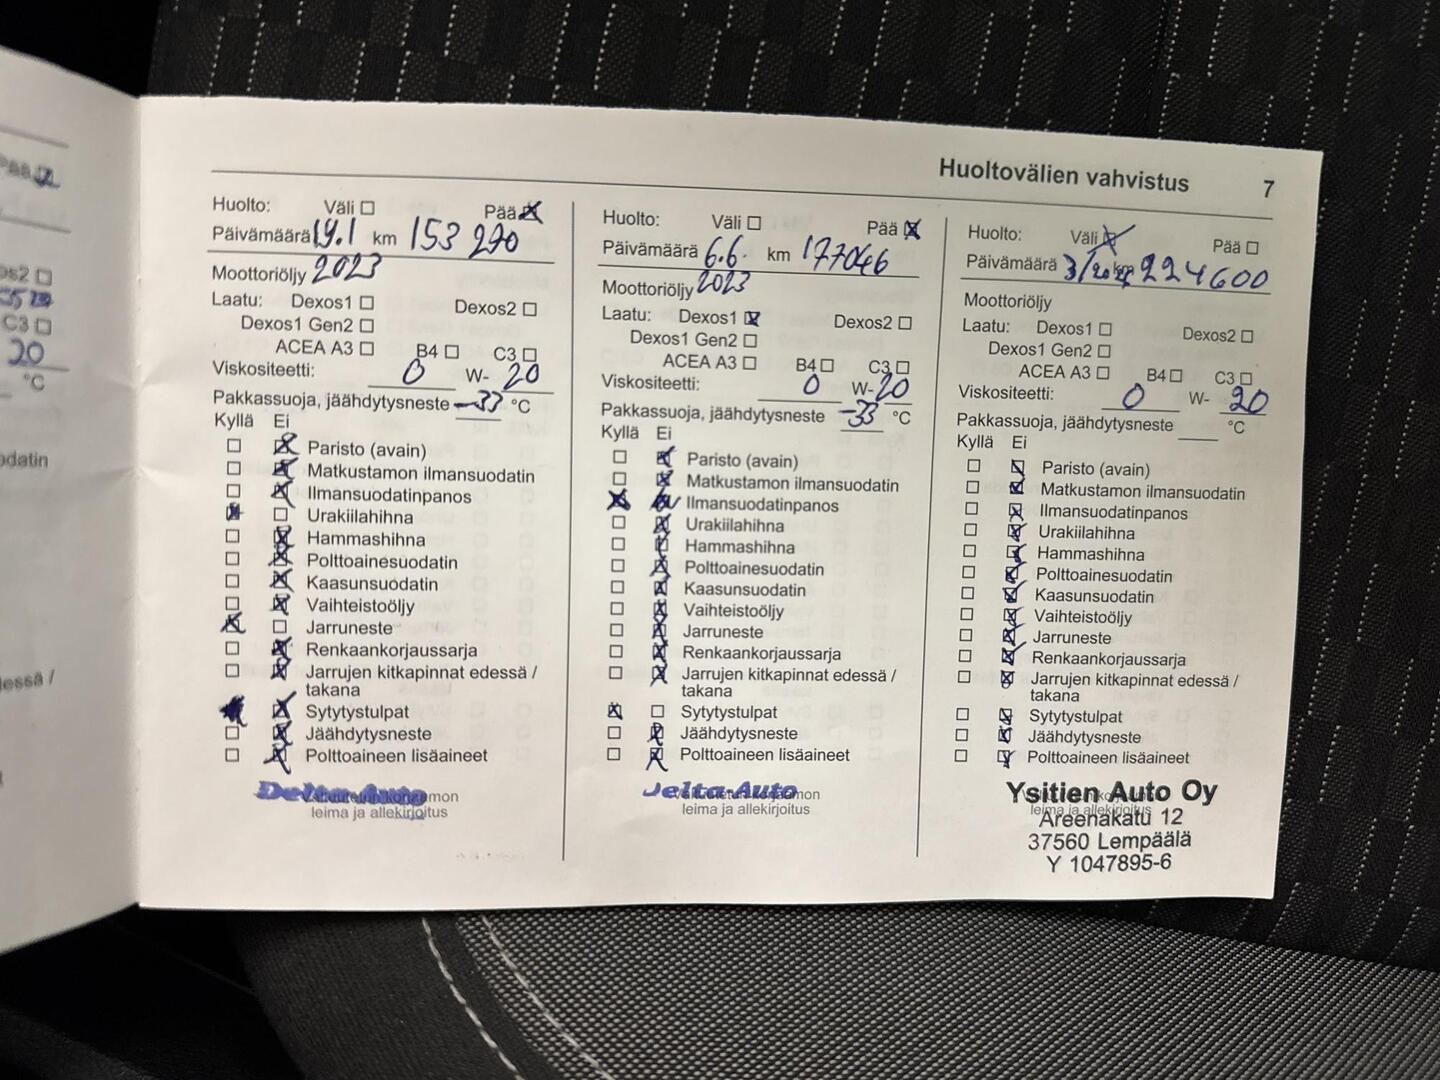 Pää
os2
C3
20
°C
odatin
essä /
Huoltovälien vahvistus 7
Huolto: Väli Pää
Päivämäärä 19.1 km 153 270
Moottoriöljy 2023
Laatu: Dexos1 Dexos2
Dexos1 Gen2
ACEA A3 B4 C3
Viskositeetti: 0 W- 20
Pakkassuoja, jäähdytysneste -33 °C
Kyllä Ei
Paristo (avain)
Matkustamon ilmansuodatin
Ilmansuodatinpanos
Urakiilahihna
Hammashihna
Polttoainesuodatin
Kaasunsuodatin
Vaihteistoöljy
Jarruneste
Renkaankorjaussarja
Jarrujen kitkapinnat edessä /
takana
Sytytystulpat
Jäähdytysneste
Polttoaineen lisäaineet
Delta-Auto
leima ja allekirjoitus
Huolto: Väli Pää
Päivämäärä 6.6. km 177046
Moottoriöljy 2023
Laatu: Dexos1 Dexos2
Dexos1 Gen2
ACEA A3 B4 C3
Viskositeetti: 0 W- 20
Pakkassuoja, jäähdytysneste -33 °C
Kyllä Ei
Paristo (avain)
Matkustamon ilmansuodatin
Ilmansuodatinpanos
Urakiilahihna
Hammashihna
Polttoainesuodatin
Kaasunsuodatin
Vaihteistoöljy
Jarruneste
Renkaankorjaussarja
Jarrujen kitkapinnat edessä /
takana
Sytytystulpat
Jäähdytysneste
Polttoaineen lisäaineet
Delta-Auto
leima ja allekirjoitus
Huolto: Väli Pää
Päivämäärä km 224600
Moottoriöljy
Laatu: Dexos1 Dexos2
Dexos1 Gen2
ACEA A3 B4 C3
Viskositeetti: 0 W- 20
Pakkassuoja, jäähdytysneste °C
Kyllä Ei
Paristo (avain)
Matkustamon ilmansuodatin
Ilmansuodatinpanos
Urakiilahihna
Hammashihna
Polttoainesuodatin
Kaasunsuodatin
Vaihteistoöljy
Jarruneste
Renkaankorjaussarja
Jarrujen kitkapinnat edessä /
takana
Sytytystulpat
Jäähdytysneste
Polttoaineen lisäaineet
Ysitien Auto Oy
Areenakatu 12
37560 Lempäälä
Y 1047895-6